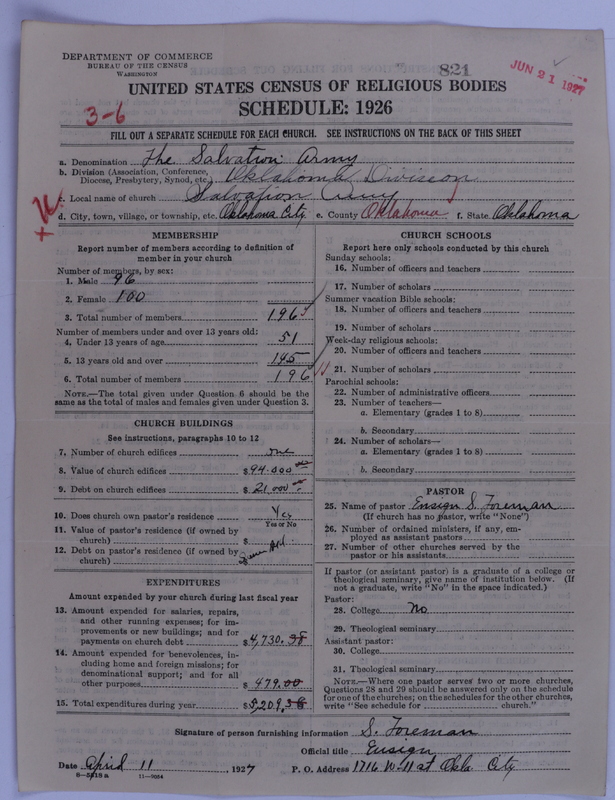 DEPARTMENT OF COMMERCE
BUREAU OF THE CENSUS
WASHINGTON
821
JUN 21 1927
UNITED STATES CENSUS OF RELIGIOUS BODIES
SCHEDULE: 1926
3-6
FILL OUT A SEPARATE SCHEDULE FOR EACH CHURCH. SEE INSTRUCTIONS ON THE BACK OF THIS SHEET
a. Denomination The Salvation Army
b. Division (Association, Conference, Diocese, Presbytery, Synod, etc.) Oklahoma Division
c. Local name of church Salvation Army
d. City, town, village, or township, etc. Oklahoma City e. County Oklahoma f. State Oklahoma
MEMBERSHIP
Report number of members according to definition of member in your church
Number of members, by sex:
1. Male 96
2. Female 100
3. Total number of members 196
Number of members under and over 13 years old:
4. Under 13 years of age 51
5. 13 years old and over 145
6. Total number of members 196
NOTE.—The total given under Question 6 should be the same as the total of males and females given under Question 3.
CHURCH BUILDINGS
See instructions, paragraphs 10 to 12
7. Number of church edifices one
8. Value of church edifices $94.000 00
9. Debt on church edifices $21,000
10. Does church own pastor's residence Yes
Yes or No
11. Value of pastor's residence (if owned by church) $
12. Debt on pastor's residence (if owned by church)
EXPENDITURES
Amount expended by your church during last fiscal year
13. Amount expended for salaries, repairs, and other running expenses; for improvements or new buildings; and for payments on church debt $4,730.38
14. Amount expended for benevolences, including home and foreign missions; for denominational support; and for all other purposes $479.00
15. Total expenditures during year $5,209.38
CHURCH SCHOOLS
Report here only schools conducted by this church
Sunday schools:
16. Number of officers and teachers
17. Number of scholars
Summer vacation Bible schools:
18. Number of officers and teachers
19. Number of scholars
Week-day religious schools:
20. Number of officers and teachers
21. Number of scholars
Parochial schools:
22. Number of administrative officers
23. Number of teachers—
a. Elementary (grades 1 to 8)
b. Secondary
24. Number of scholars—
a. Elementary (grades 1 to 8)
b. Secondary
PASTOR
25. Name of pastor Ensign S. Foreman
(If church has no pastor, write "None")
26. Number of ordained ministers, if any, employed as assistant pastors
27. Number of other churches served by the pastor or his assistants
If pastor (or assistant pastor) is a graduate of a college or theological seminary, give name of institution below. (If not a graduate, write "No" in the space indicated.)
Pastor:
28. College No
29. Theological seminary
Assistant pastor:
30. College
31. Theological seminary
NOTE.—Where one pastor serves two or more churches, Questions 28 and 29 should be answered only on the schedule for one of the churches; on the schedules for the other churches, write "See schedule for ........ church."
Signature of person furnishing information S. Foreman
Official title Ensign
Date April 11, 1927 P. O. Address 1716 W-11 st Okla City
8-5218a 11-9064